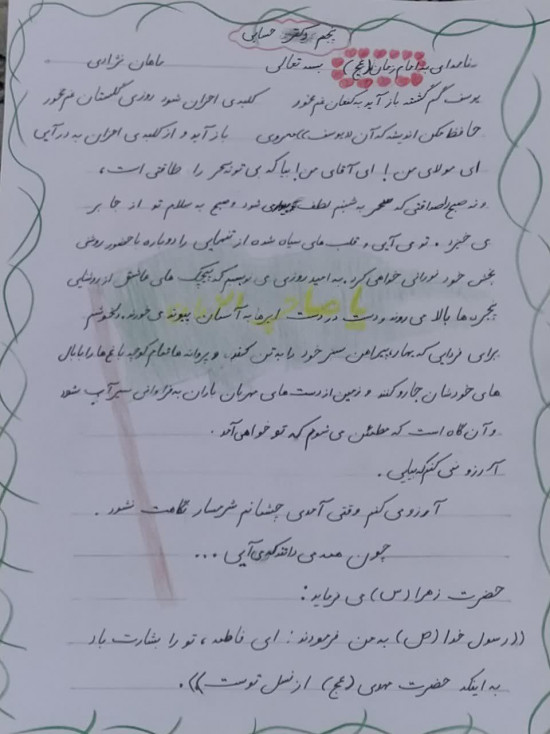 پنجم دکتر حسابی
نامه ای به امام زمان (عج) بسمه تعالی ماهان نژادی
یوسف گم گشته باز آید به کنعان غم مخور کلبه ی احزان شود روزی گلستان غم مخور
حافظ مکن اندیشه که آن یوسف باز آید و از کلبه ی احزان به در آیی
ای مولای من! ای آقای من! بیا که بی تو نه بحر را طاقتی است،
و نه صبح را صداقتی که سحر به شبنم لطف شود و صبح به سلام تو از جا بر
می خیزد. تو می آیی و قلب های سیاه شده از تنهایی را دوباره با حضور روشنی
بخش خود نورانی خواهی کرد. به امید روزی می نویسم که پیچک های عاشق از روشنایی
پنجره ها بالا می روند و دست در دست ابرها به آسمان پیوند می خورند.
برای فردایی که بهار پیراهن سبز خود را به تن کند و پروانه ها تمام کوچه باغ ها را با بال
های خودشان جارو کنند و زمین از دست های مهربان باران به فراوانی سیرآب شود
و آن گاه است که مطمئن می شوم که تو خواهی آمد.
آرزو نمی کنم که بیایی.
آرزو می کنم وقتی آمدی چشمانم شرمسار نگاهت نشود.
چون می دانند که می آیی ...
یا صاحب الزمان
حضرت زهرا (س) می فرماید:
((رسول خدا (ص) به من فرمودند: ای فاطمه، تو را بشارت باد
به اینکه حضرت مهدی (عج) از نسل توست)).